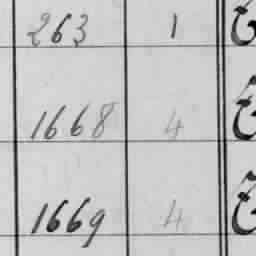 263 1
1668 4
1669 4